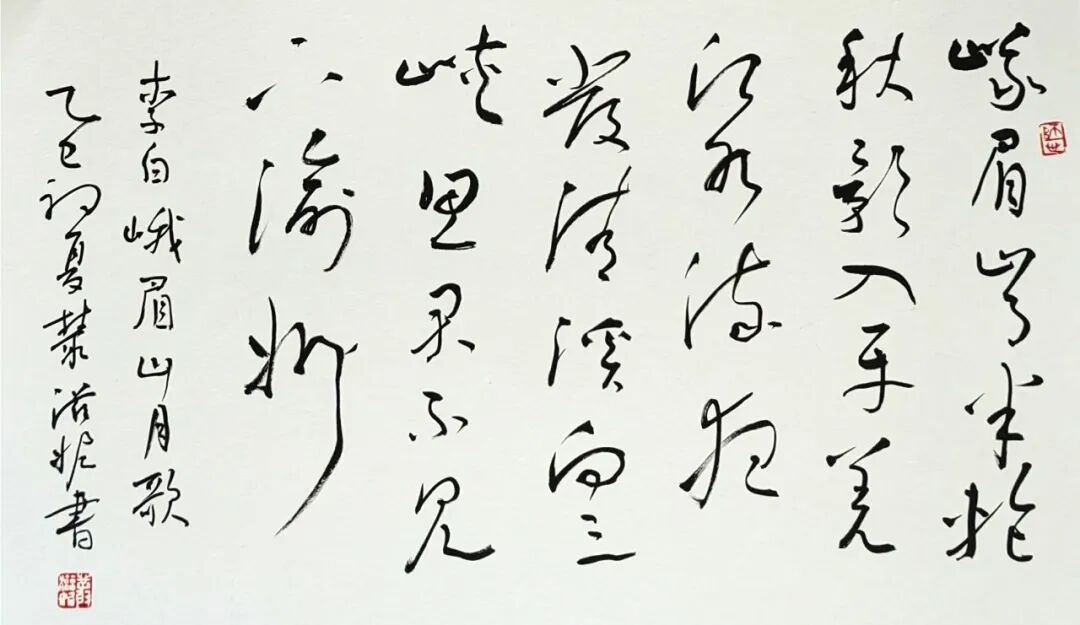 峨眉山月半輪
秋影入平羌
江水流夜
發清溪向三
峡思君不見
下渝州
李白峨眉山月歌
乙巳初夏書